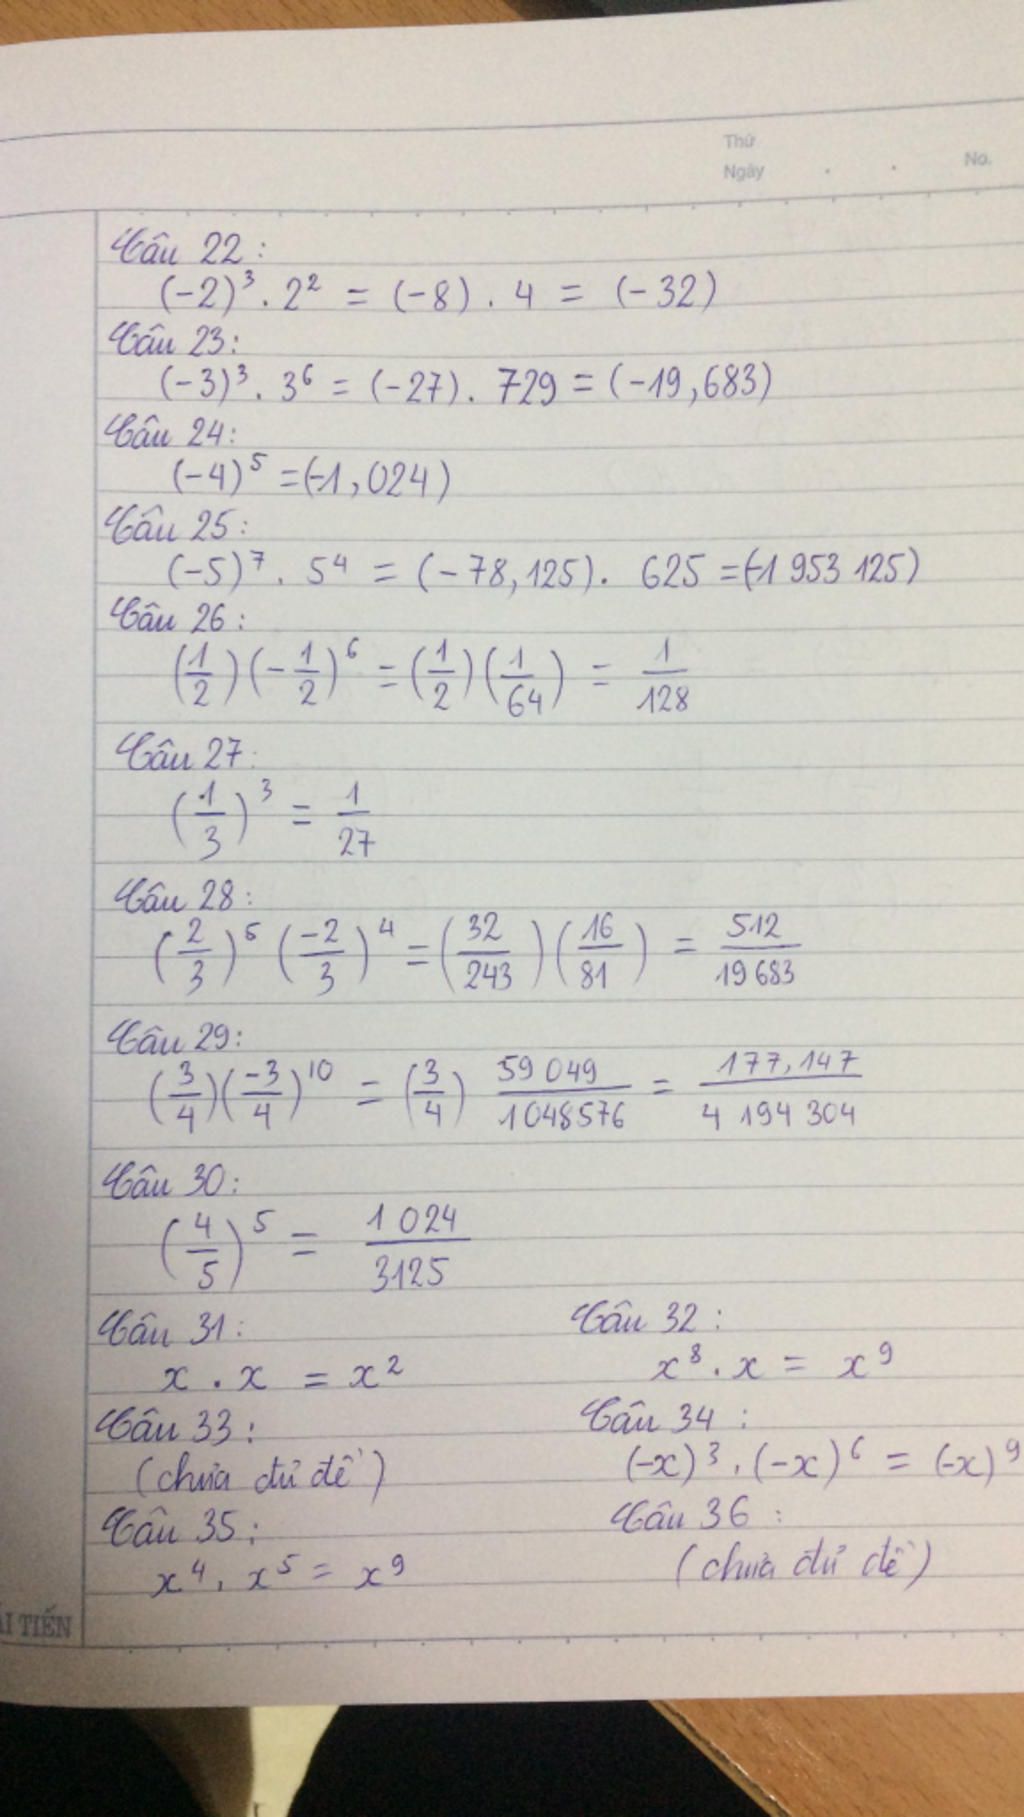 Thứ
Ngày . . No.
Câu 22 :
(-2)³ . 2² = (-8) . 4 = (-32)
Câu 23:
(-3)³ . 3⁶ = (-27). 729 = (-19,683)
Câu 24:
(-4)⁵ = (-1,024)
Câu 25:
(-5)⁷ . 5⁴ = (-78,125). 625 = (-1 953 125)
Câu 26:
(1/2)(-1/2)⁶ = (1/2)(1/64) = 1/128
Câu 27:
(1/3)³ = 1/27
Câu 28:
(2/3)⁵ (-2/3)⁴ = (32/243)(16/81) = 512/19683
Câu 29:
(3/4)(-3/4)¹⁰ = (3/4) 59 049/1 048576 = 177,147/4 194 304
Câu 30:
(4/5)⁵ = 1 024/3125
Câu 31: Câu 32 :
x . x = x² x⁸ . x = x⁹
Câu 33 : Câu 34 :
(chưa đủ đề) (-x)³ . (-x)⁶ = (-x)⁹
Câu 35: Câu 36 :
x⁴ . x⁵ = x⁹ (chưa đủ đề)
TIẾN